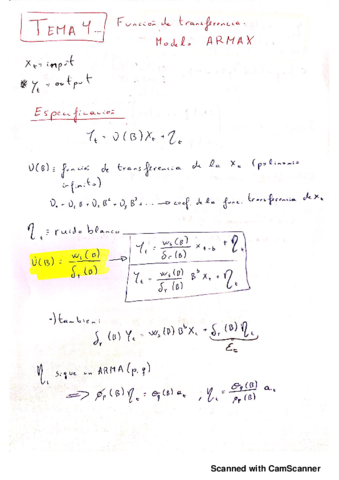 TEMA 4.. Función de transferencia.
Modelo ARMAX
Xₜ = input
Yₜ = output
Especificación
Yₜ = υ(B)Xₜ + ηₜ
υ(B): función de transferencia de la Xₜ (polinomio
infinito)
υ₀ + υ₁B + υ₂B² + υ₃B³ + ... → coef. de la func. transferencia de xₜ
ηₜ = ruido blanco
υ(B) = wₛ(B)/δᵣ(B) → Yₜ = wₛ(B)/δᵣ(B) xₜ₋ᵦ + ηₜ
Yₜ = wₛ(B)/δᵣ(B) Bᵇ Xₜ + ηₜ
también:
δᵣ(B) Yₜ = wₛ(B) Bᵇ Xₜ + δᵣ(B) ηₜ
εₜ
ηₜ sigue un ARMA(p,q)
⇒ φₚ(B) ηₜ = θq(B) aₜ , ηₜ = θq(B)/φₚ(B) aₜ
Scanned with CamScanner